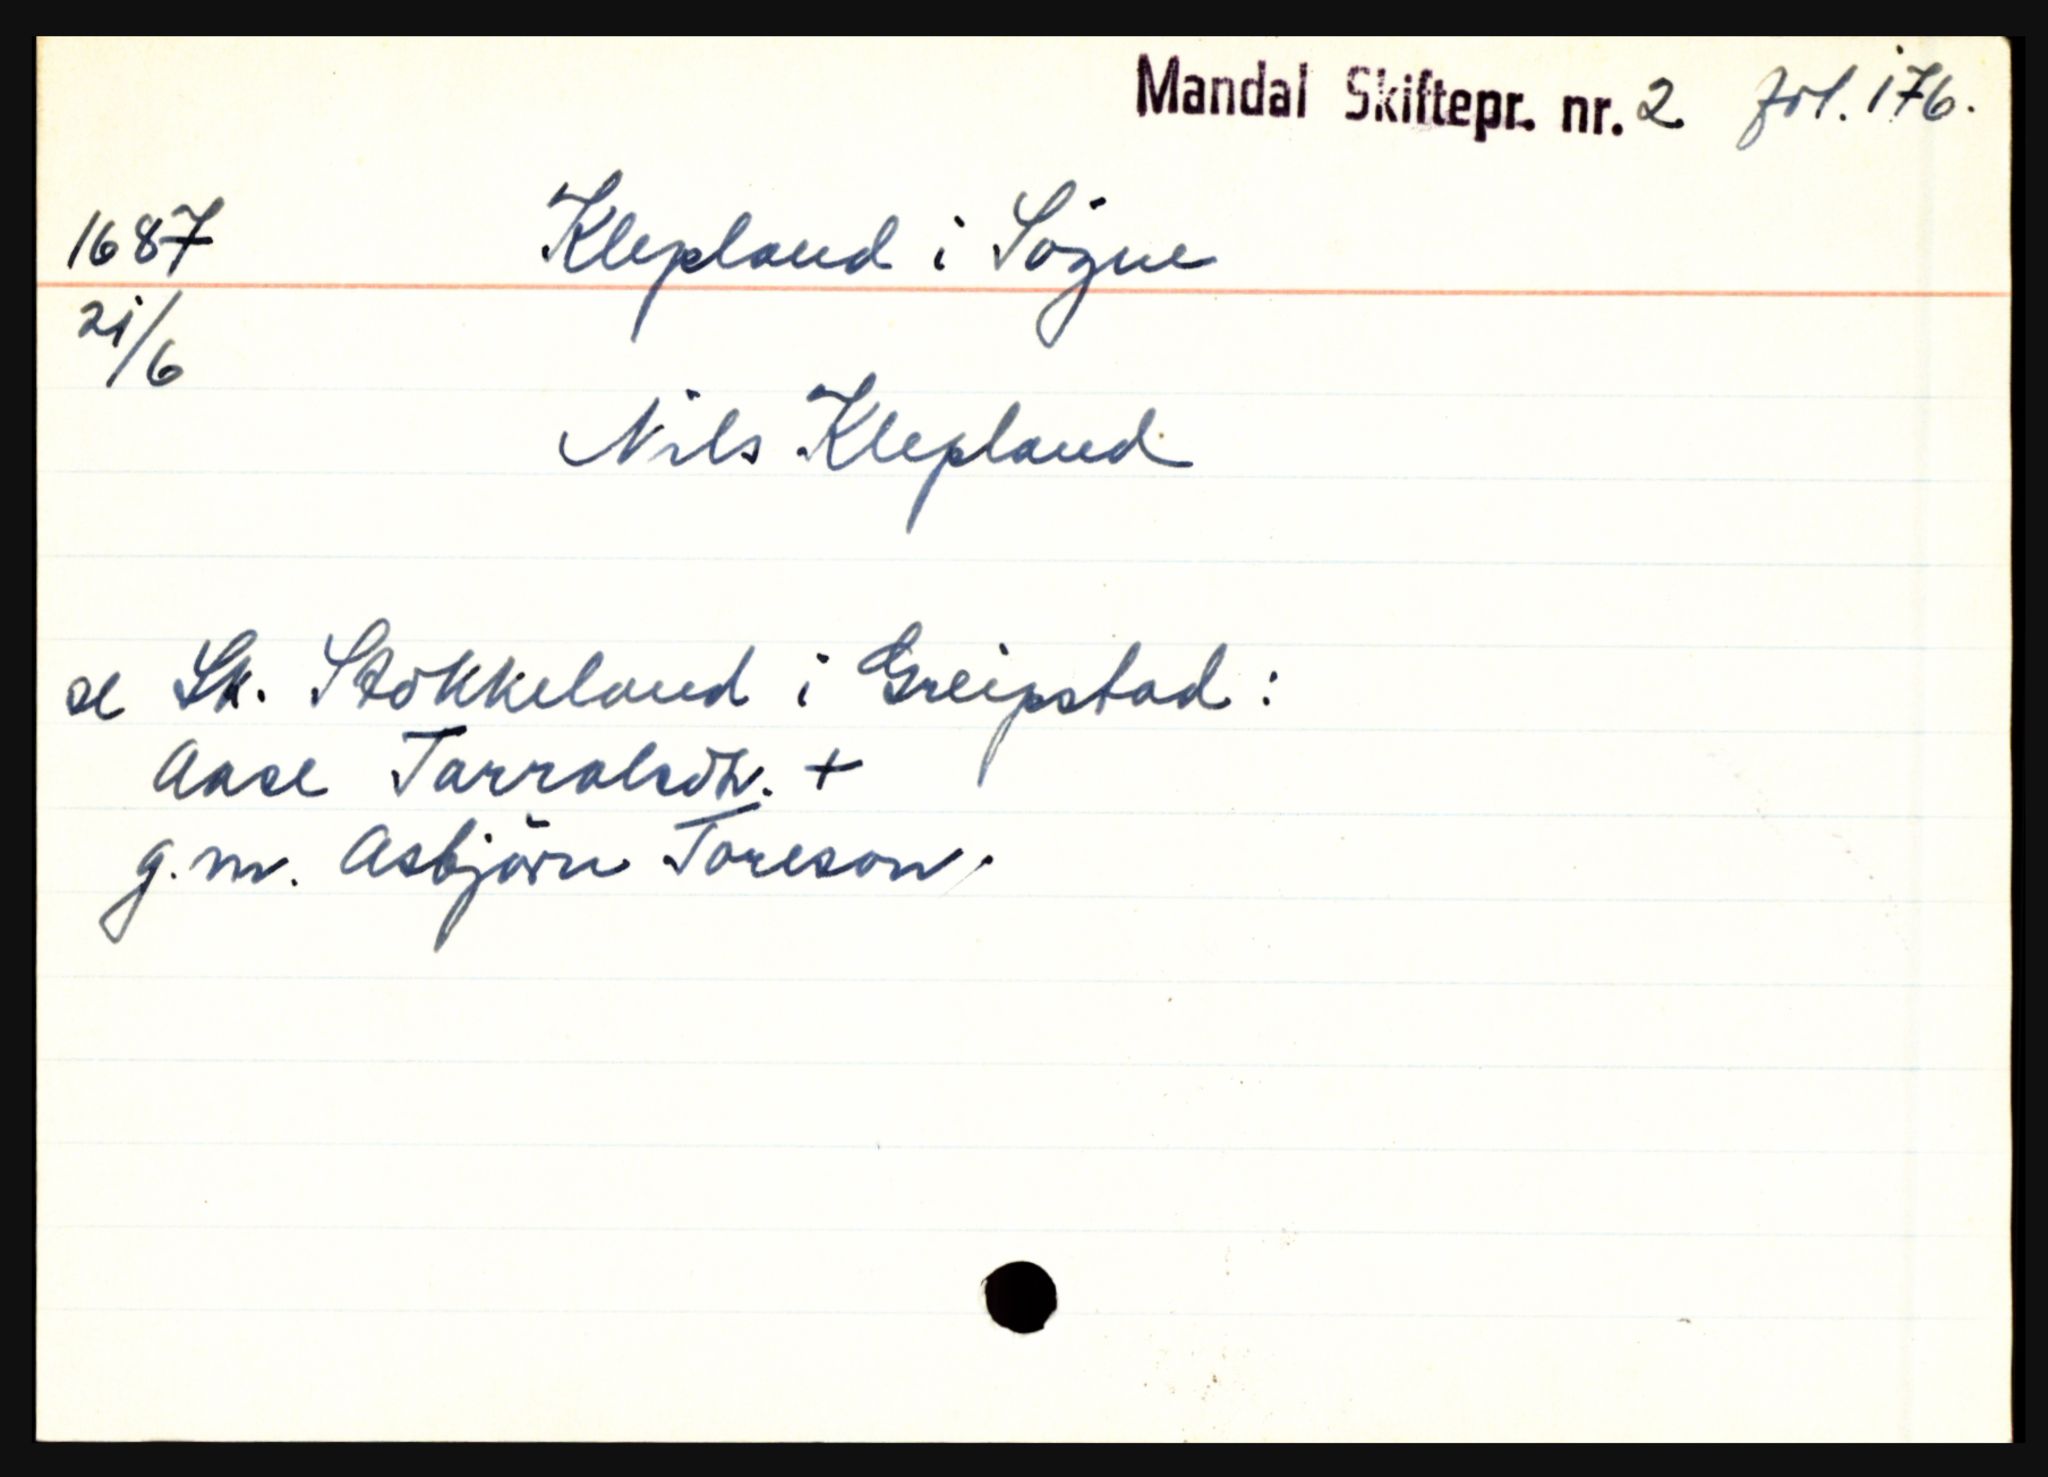 Mandal Skiftepr. nr. 2 fol. 176.
1687 Klepland i Søgne
21/6
Nils Klepland
se Sk. Stokkeland i Greipstad:
Aase Tarralsdtr. +
g. m. Asbjörn Toreson.